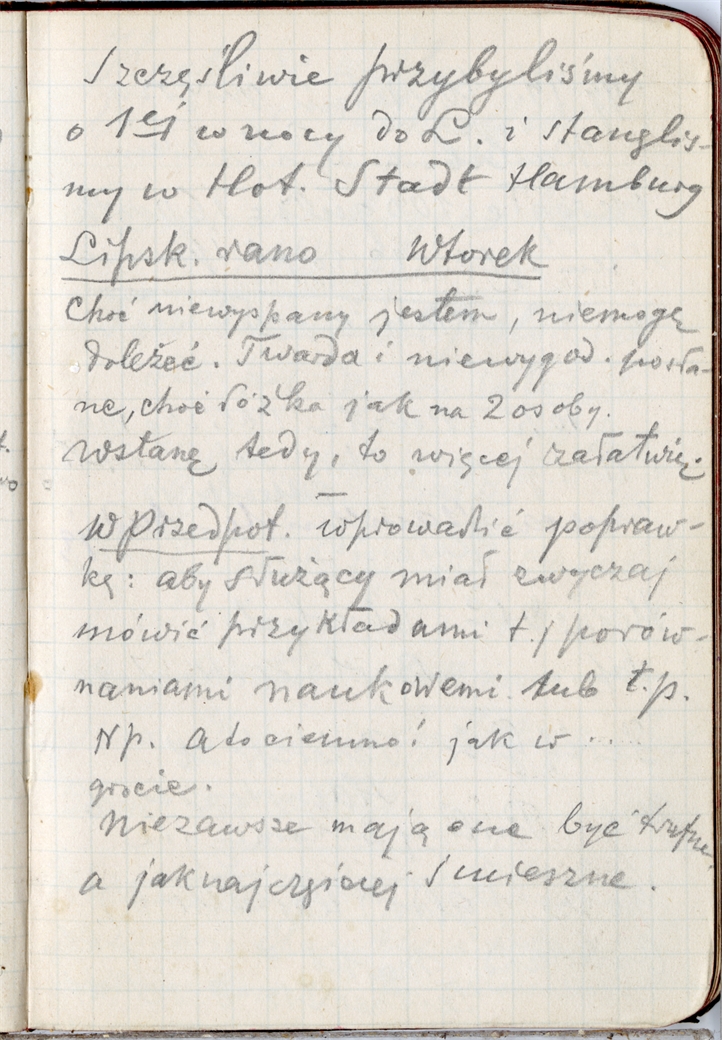 Szczęśliwie przybyliśmy
o 1ej w nocy do L. i stanęliś-
my w Hot. Stadt Hamburg
Lipsk. rano Wtorek
Choć niewyspany jestem, niemogę
doleżeć. Twarda i niewygod. posła-
nie, choć łóżka jak na 2 osoby.
Wstanę tedy, to więcej załatwię.
W Przedpot. wprowadzić popraw-
kę: aby służący miał zwyczaj
mówić przykładami t.j porów-
naniami naukowemi lub t.p.
Np. A to ciemno! jak w ....
grocie.
Niezawsze mają one być trafne
a jaknajczęściej śmieszne.